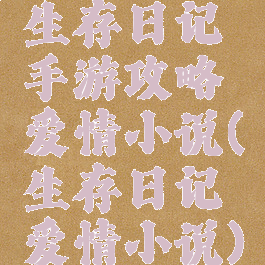 生存日记
手游攻略
爱情小说(
生存日记
爱情小说)